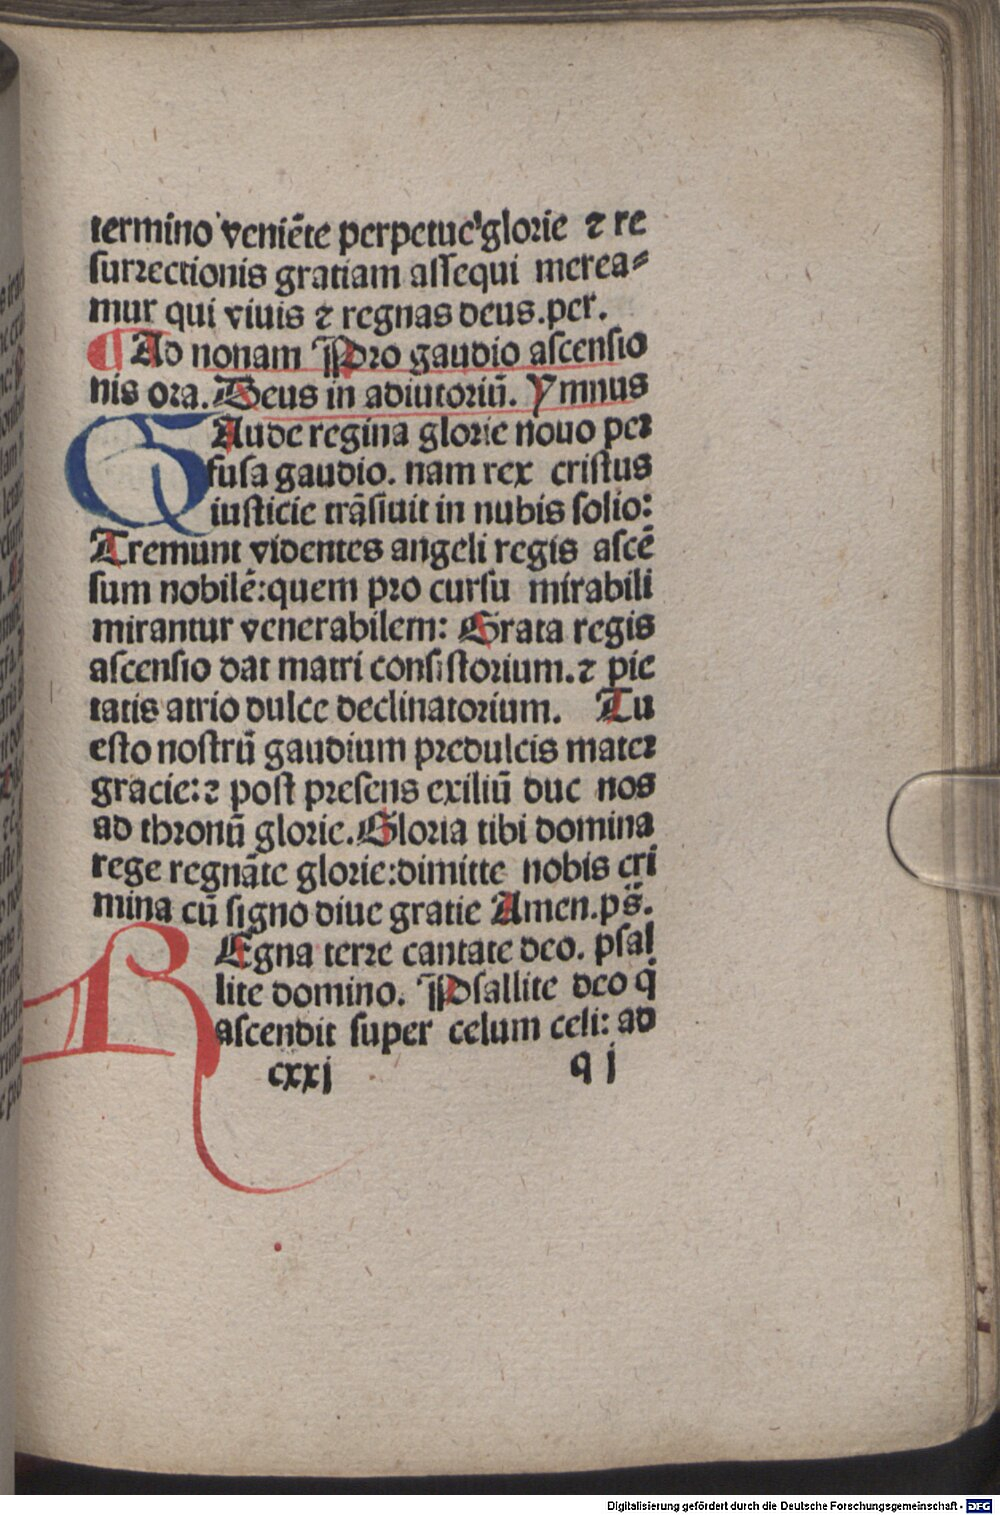 termino veniēte perpetue glorie ⁊ re
surrectionis gratiam assequi merea⸗
mur qui viuis ⁊ regnas deus.per.
¶ Ad nonam Pro gaudio ascensio
nis ora. Deus in adiutoriū. Ymnus
GAude regina glorie nouo per
fusa gaudio. nam rex cristus
iusticie trāsiuit in nubis solio:
Tremunt videntes angeli regis ascē
sum nobilē:quem pro cursu mirabili
mirantur venerabilem: Grata regis
ascensio dat matri consistorium.⁊ pie
tatis atrio dulce declinatorium. Tu
esto nostrū gaudium predulcis mater
gracie:⁊ post presens exiliū duc nos
ad thronū glorie. Gloria tibi domina
rege regnāte glorie:dimitte nobis cri
mina cū signo diue gratie Amen.ps̄.
REgna terre cantate deo. psal
lite domino. Psallite deo q̇
ascendit super celum celi: ad
cxxj q j
Digitalisierung gefördert durch die Deutsche Forschungsgemeinschaft - DFG